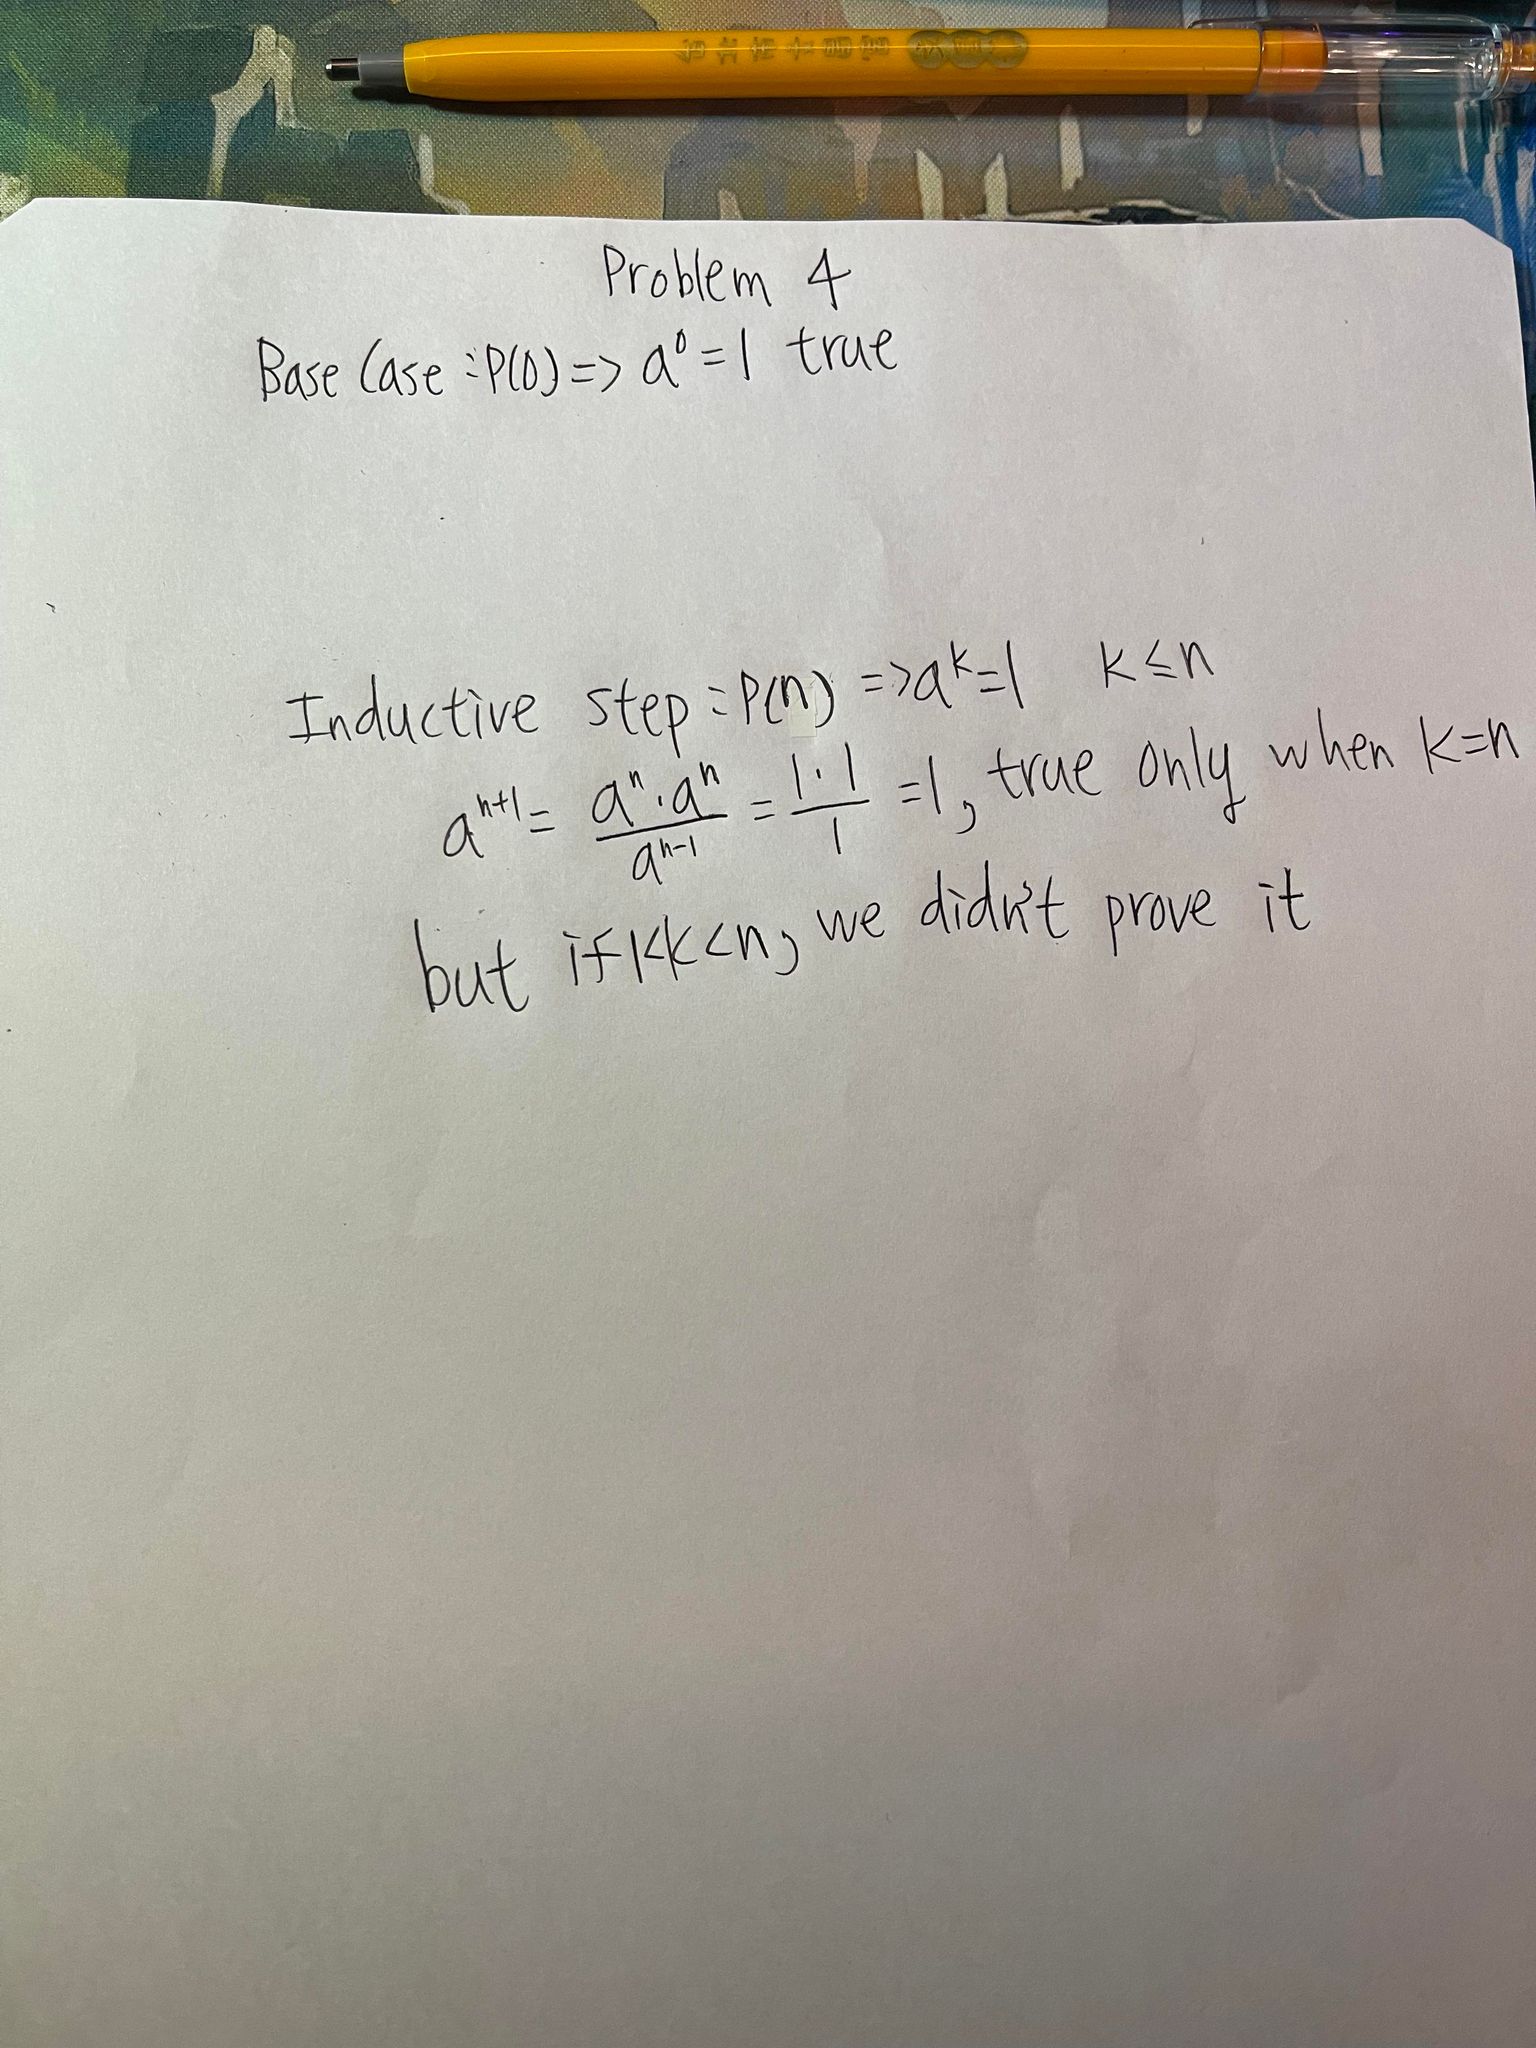 Problem 4
Base Case : P(0) => a⁰ = 1 true
Inductive step : P(n) => aᵏ = 1 k ≤ n
aⁿ⁺¹ = (aⁿ · aⁿ) / aⁿ⁻¹ = (1 · 1) / 1 = 1, true only when k = n
but if k < n, we didn't prove it